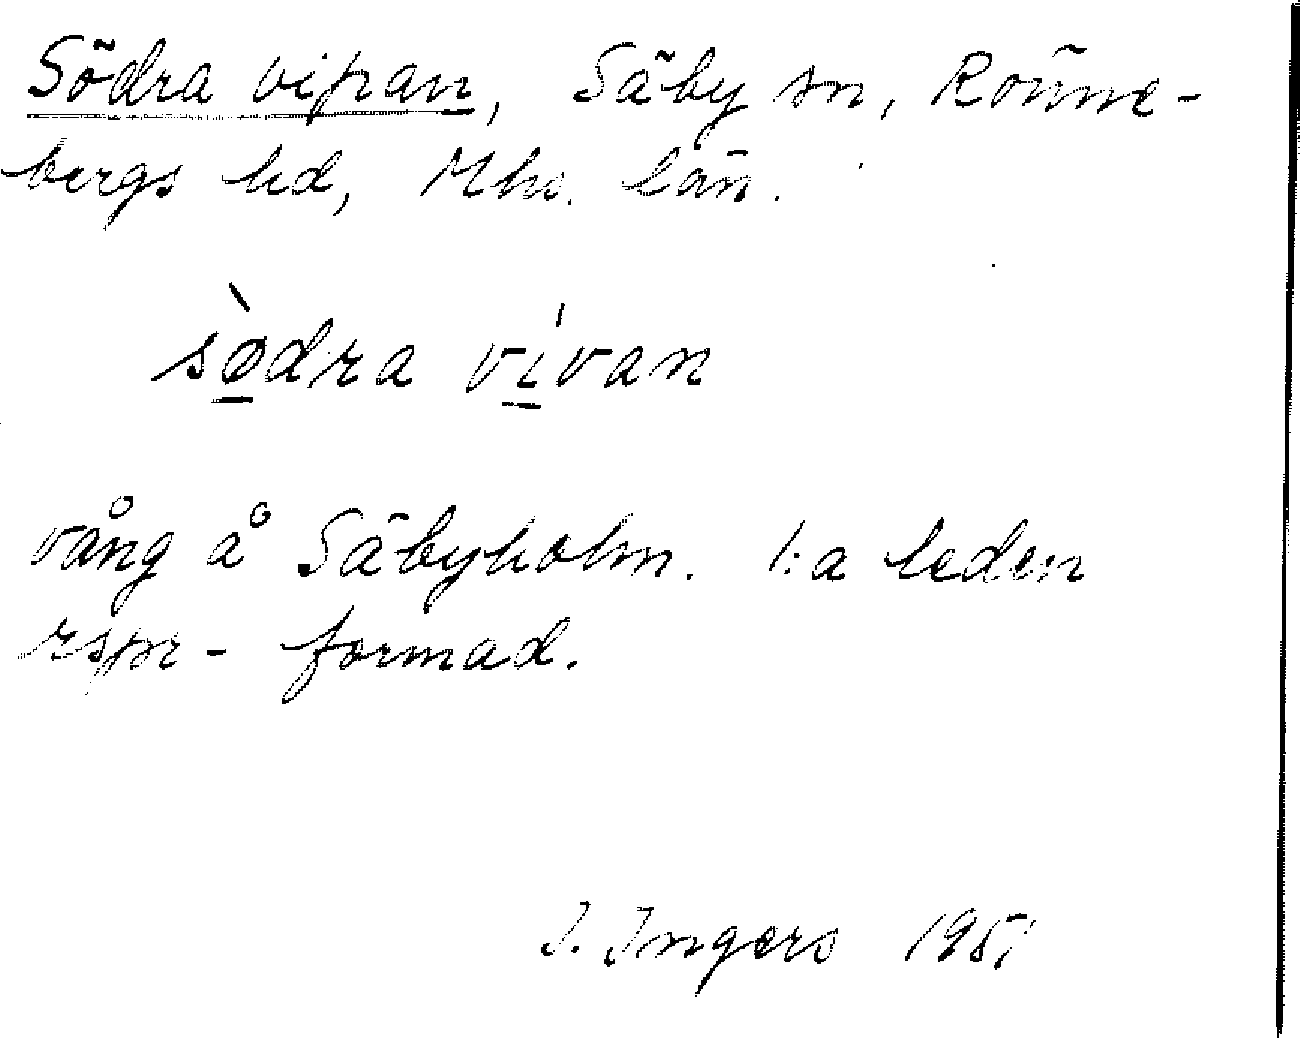 Södra vipan, Säby sn, Rönne-
bergs hd, Mhs. län.
sø̀dra vívan
vång å Säbyholm. 1:a leden
rspr-formad.
I. Ingers 1951